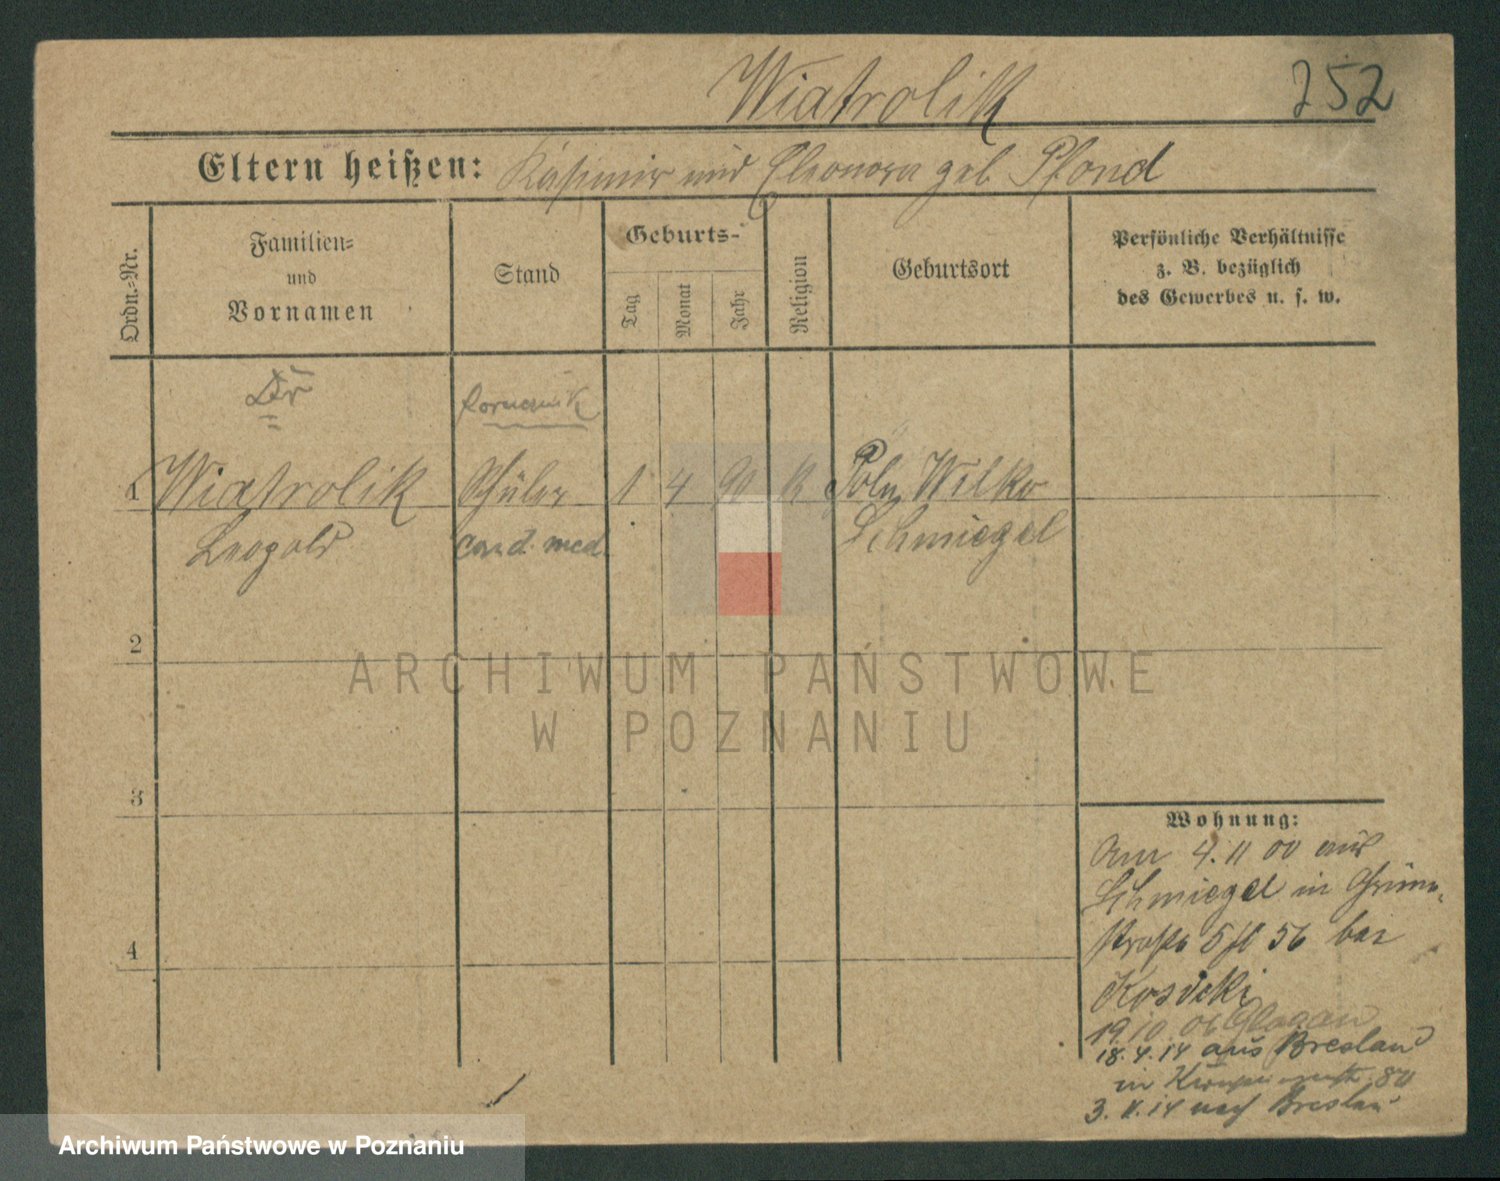 Wiatrolik
252
Eltern heißen: Kasimir und Eleonora geb. Pfond
Ordn.-Nr.
Familien-
und
Vornamen
Stand
Geburts-
Tag
Monat
Jahr
Religion
Geburtsort
Persönliche Verhältnisse
z. B. bezüglich
des Gewerbes u. s. w.
Dr
1 Wiatrolik Schüler 1 4 90 k Poln Wilke
Leopold cand. med. Schmiegel
2
3
4
Wohnung:
Am 4. 11 00 aus
Schmiegel in Grün-
straße 5 56 bei
Kosicki
19. 10. 06 Glogau
18. 4. 14 aus Breslau
in 80
3. 11. 14 nach Breslau
ARCHIWUM PAŃSTWOWE
W POZNANIU
Archiwum Państwowe w Poznaniu